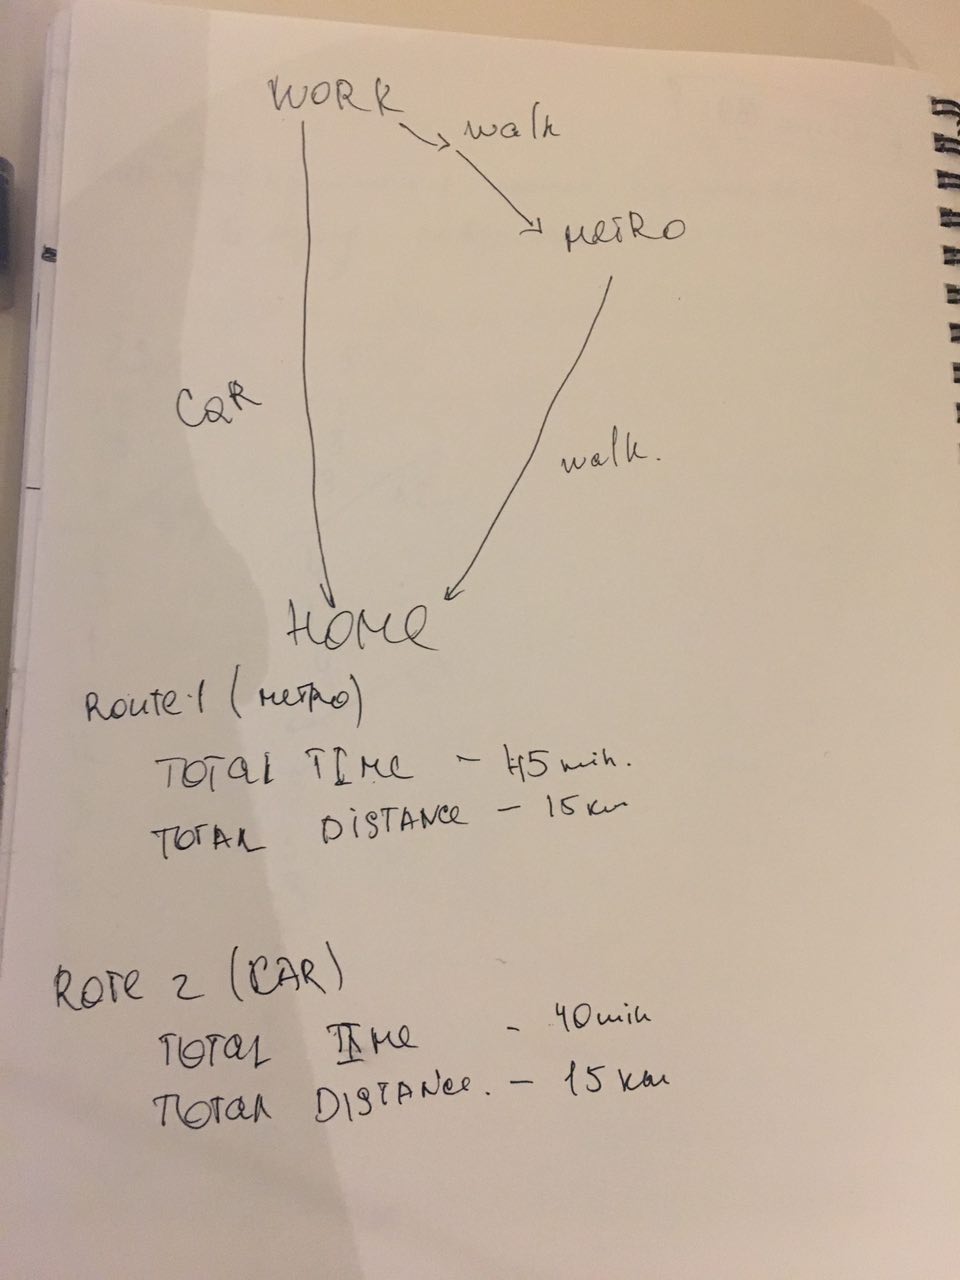 WORK
walk
METRO
CAR
walk.
HOME
Route 1 (metro)
TOTAL TIME - 45 min.
TOTAL DISTANCE - 15 km
ROTE 2 (CAR)
TOTAL TIME - 40 min
TOTAL DISTANCE. - 15 km